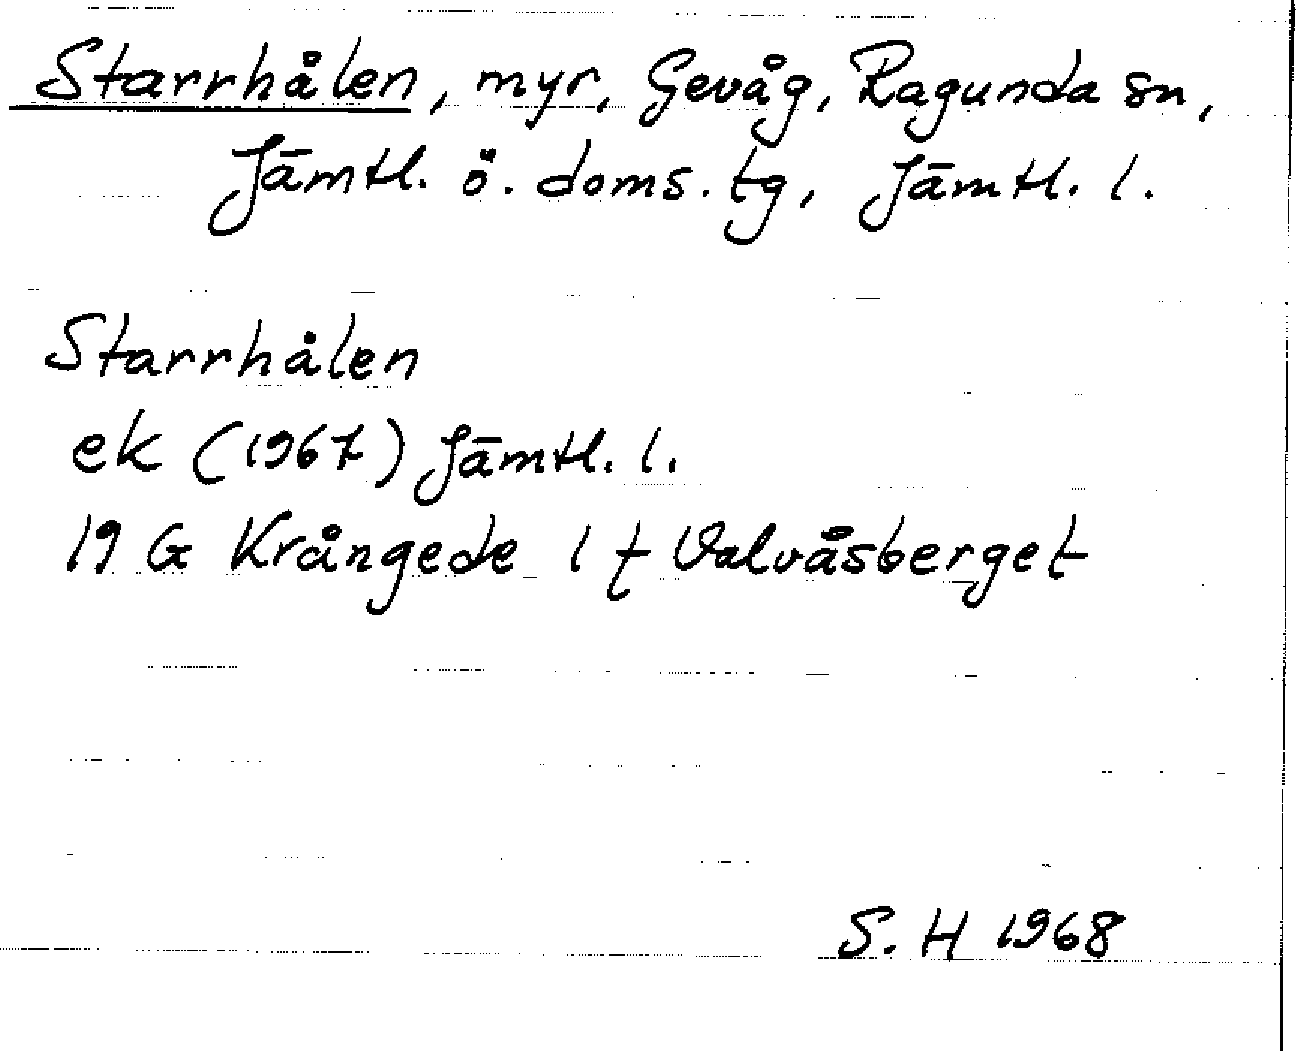 Starrhålen, myr, Gevåg, Ragunda sn,
Jämtl. ö. doms. tg, Jämtl. l.
Starrhålen
ek (1967) Jämtl. l.
19 G Krångede 1 f Valvåsberget
S. H 1968